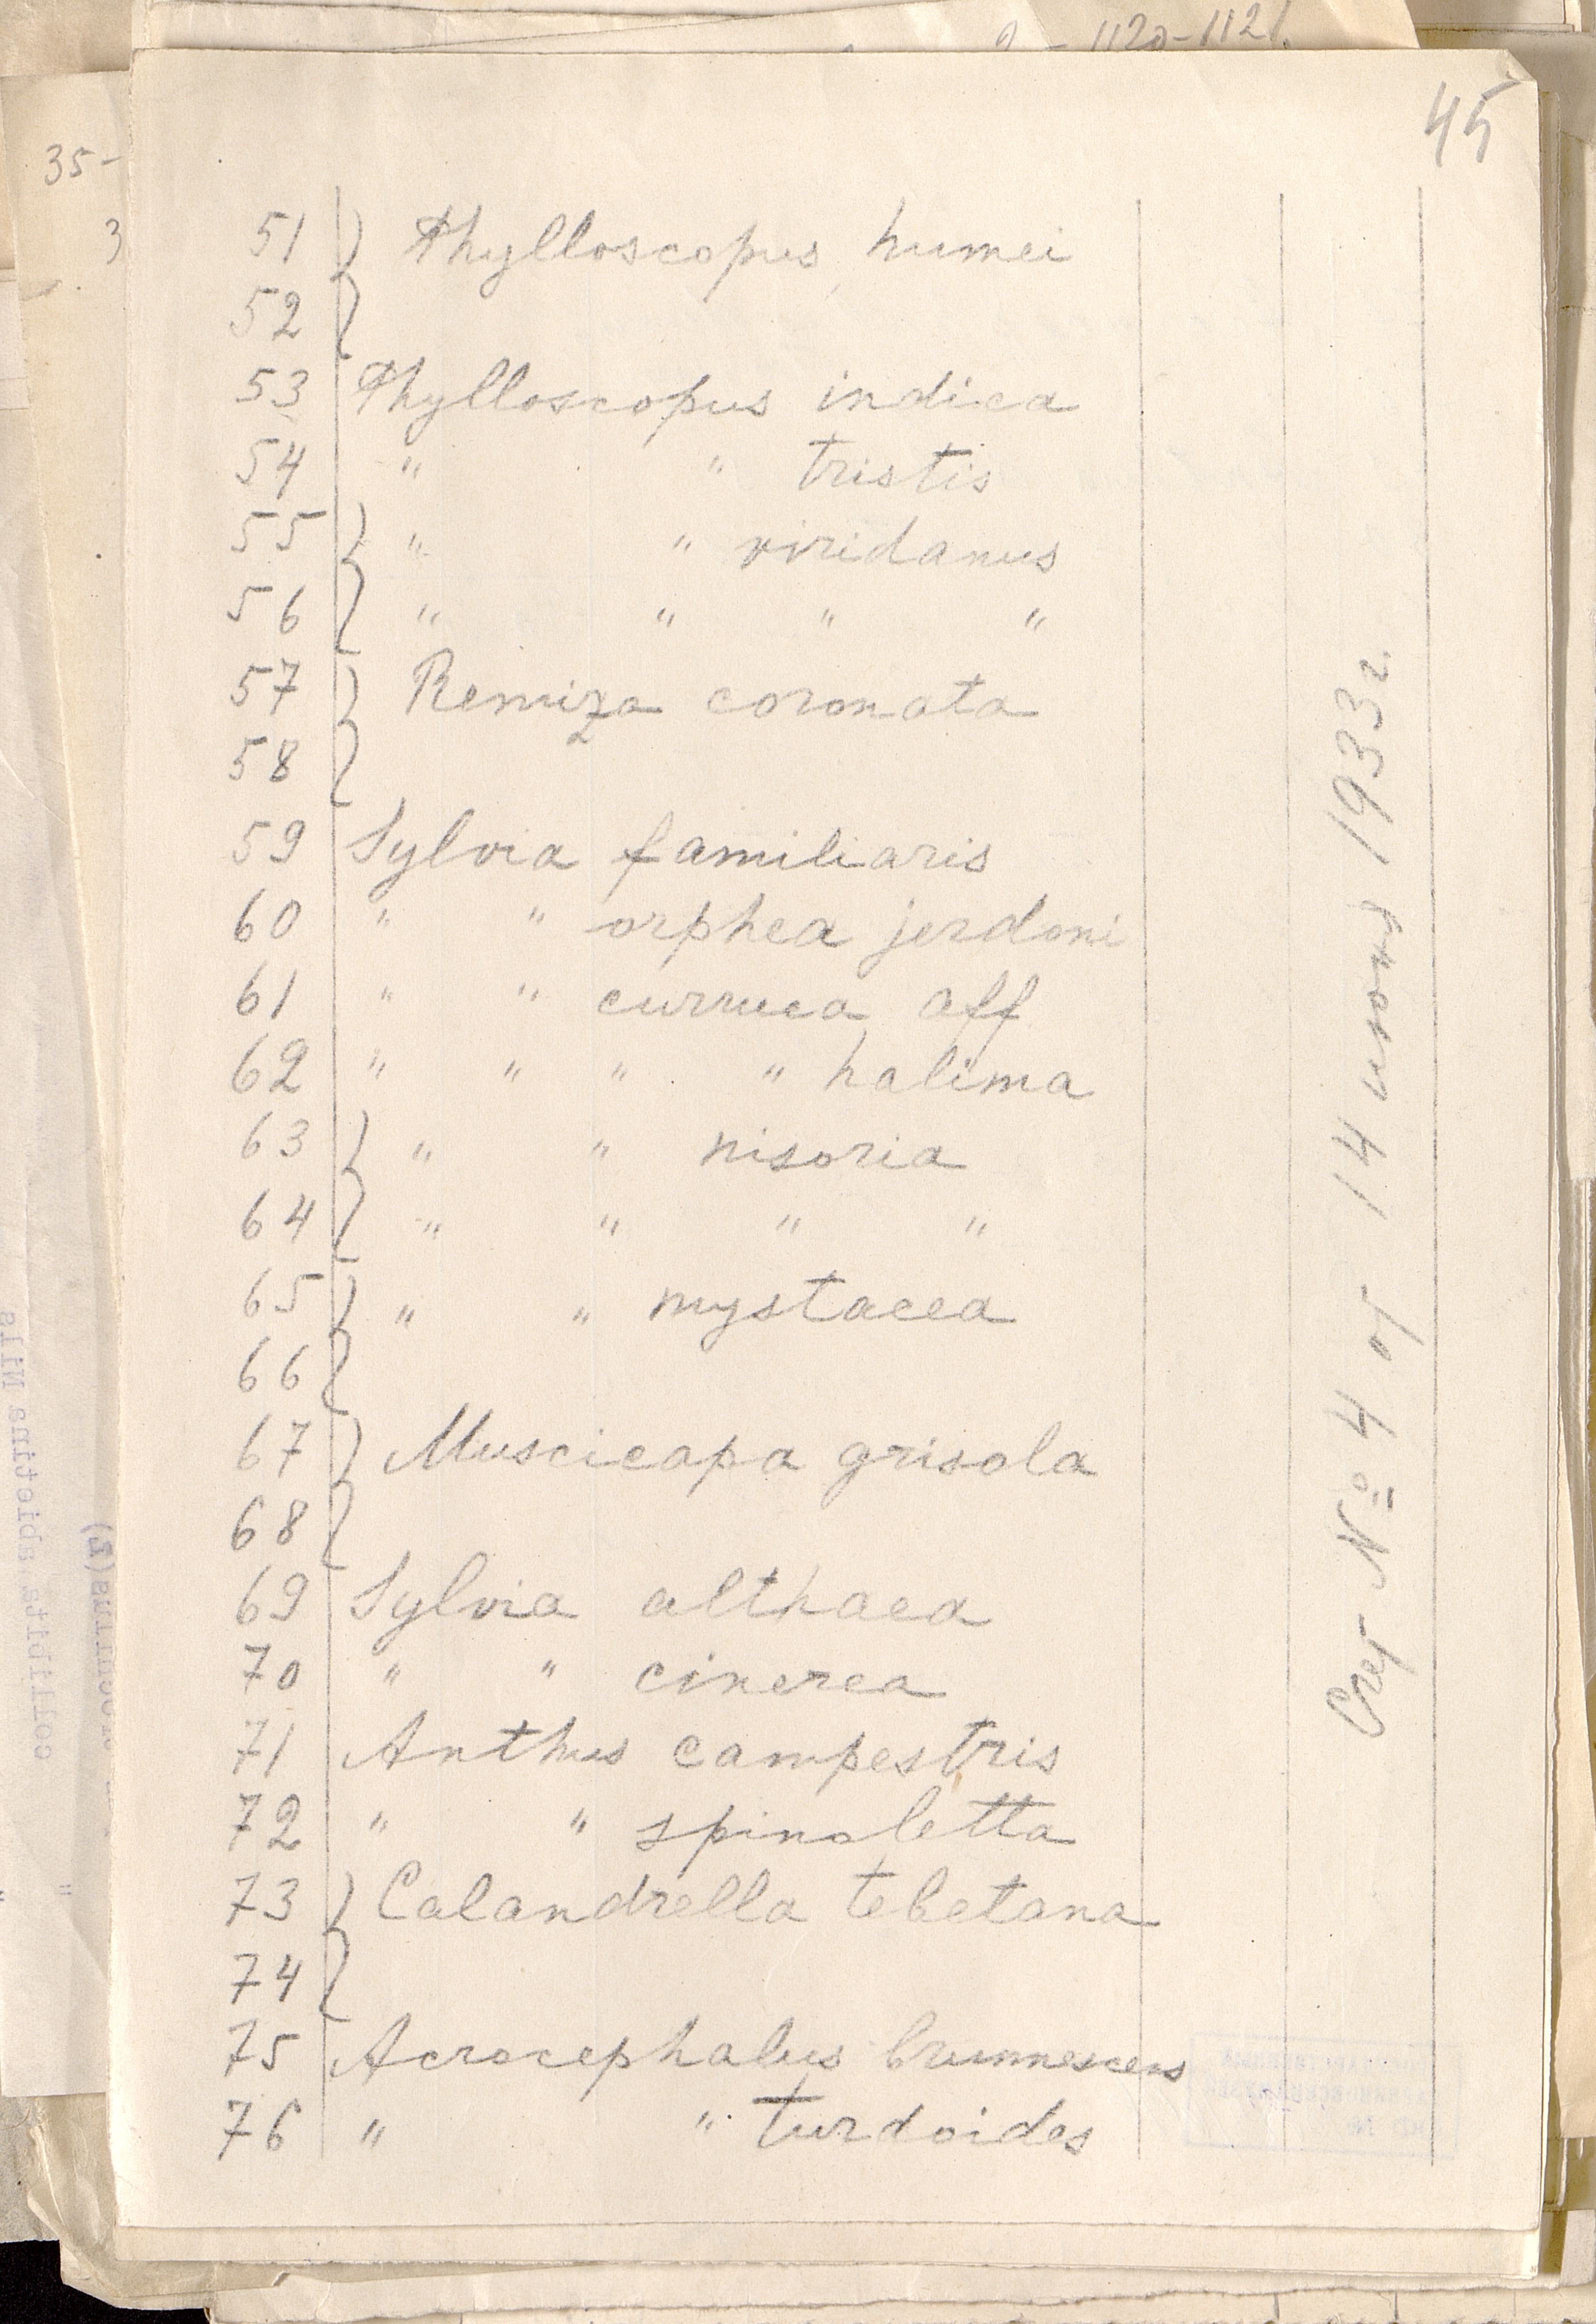 1120-1121.
45
35-
3
51 } Phylloscopus humei
52 }
53 Phylloscopus indica
54 " " tristis
55 } " " viridanus
56 } " " " "
57 } Remiza coronata
58 }
59 Sylvia familiaris
60 " " orphea jerdoni
61 " " curruca aff
62 " " " " halima
63 } " " nisoria
64 } " " " "
65 } " " mystacea
66 }
67 } Muscicapa grisola
68 }
69 Sylvia althaea
70 " " cinerea
71 Anthus campestris
72 " " spinoletta
73 } Calandrella tebetana
74 }
75 Acrocephalus brunnescens
76 " " turdoides
Счет № 4 от 14 июня 1933 г.